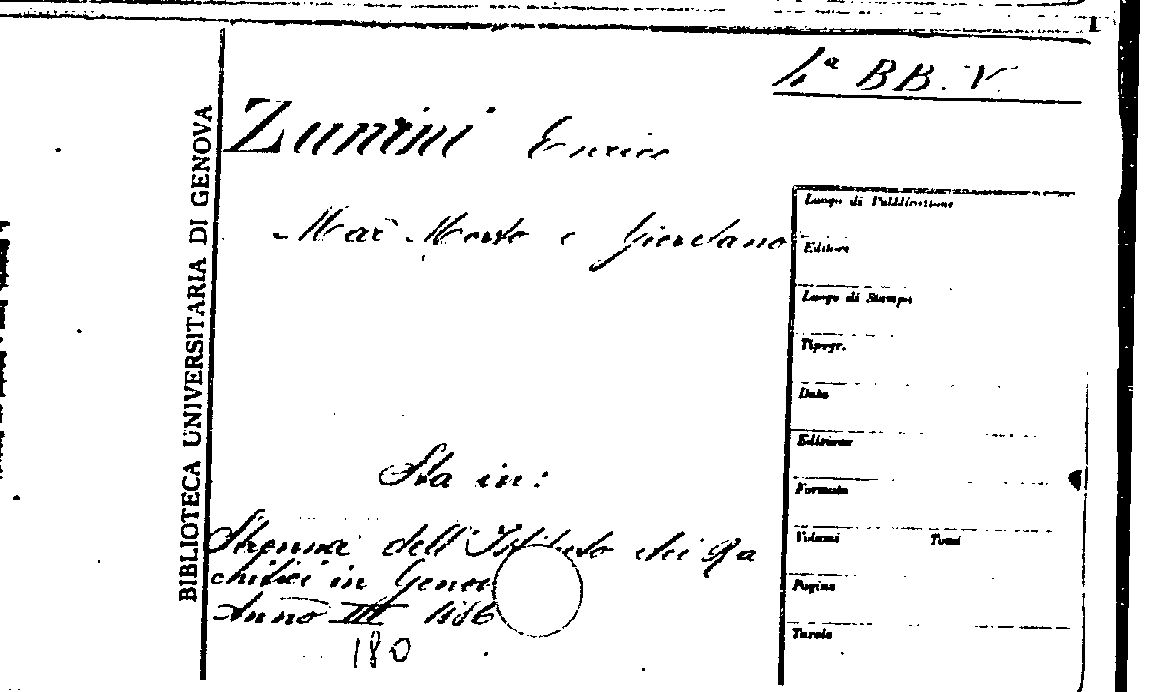 4ª BB. V.
Zunini Enrico
Mar Morto e Giordano
Luogo di Pubblicazione
Editore
Luogo di Stampa
Tipogr.
Data
Edizione
Formato
Volumi Tomi
Pagine
Tavole
Sta in:
Strenna dell'Istituto dei Ra
chitici in Genov
Anno III 1886
180
BIBLIOTECA UNIVERSITARIA DI GENOVA